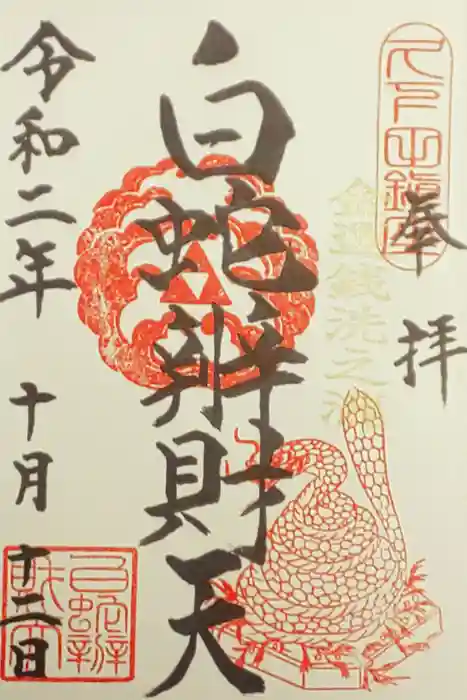 久下田鎮座
奉拝
金運銭洗之滝
白蛇辨財天
令和二年十月十二日
白蛇辨
財天